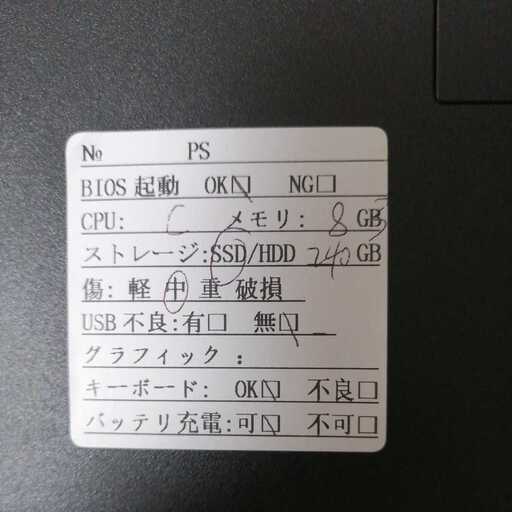 № PS
BIOS 起動 OK☑ NG□
CPU: C メモリ: 8 GB
ストレージ:SSD/HDD 240 GB
傷: 軽 中 重 破損
USB 不良:有□ 無☑
グラフィック :
キーボード: OK☑ 不良□
バッテリ充電:可☑ 不可□